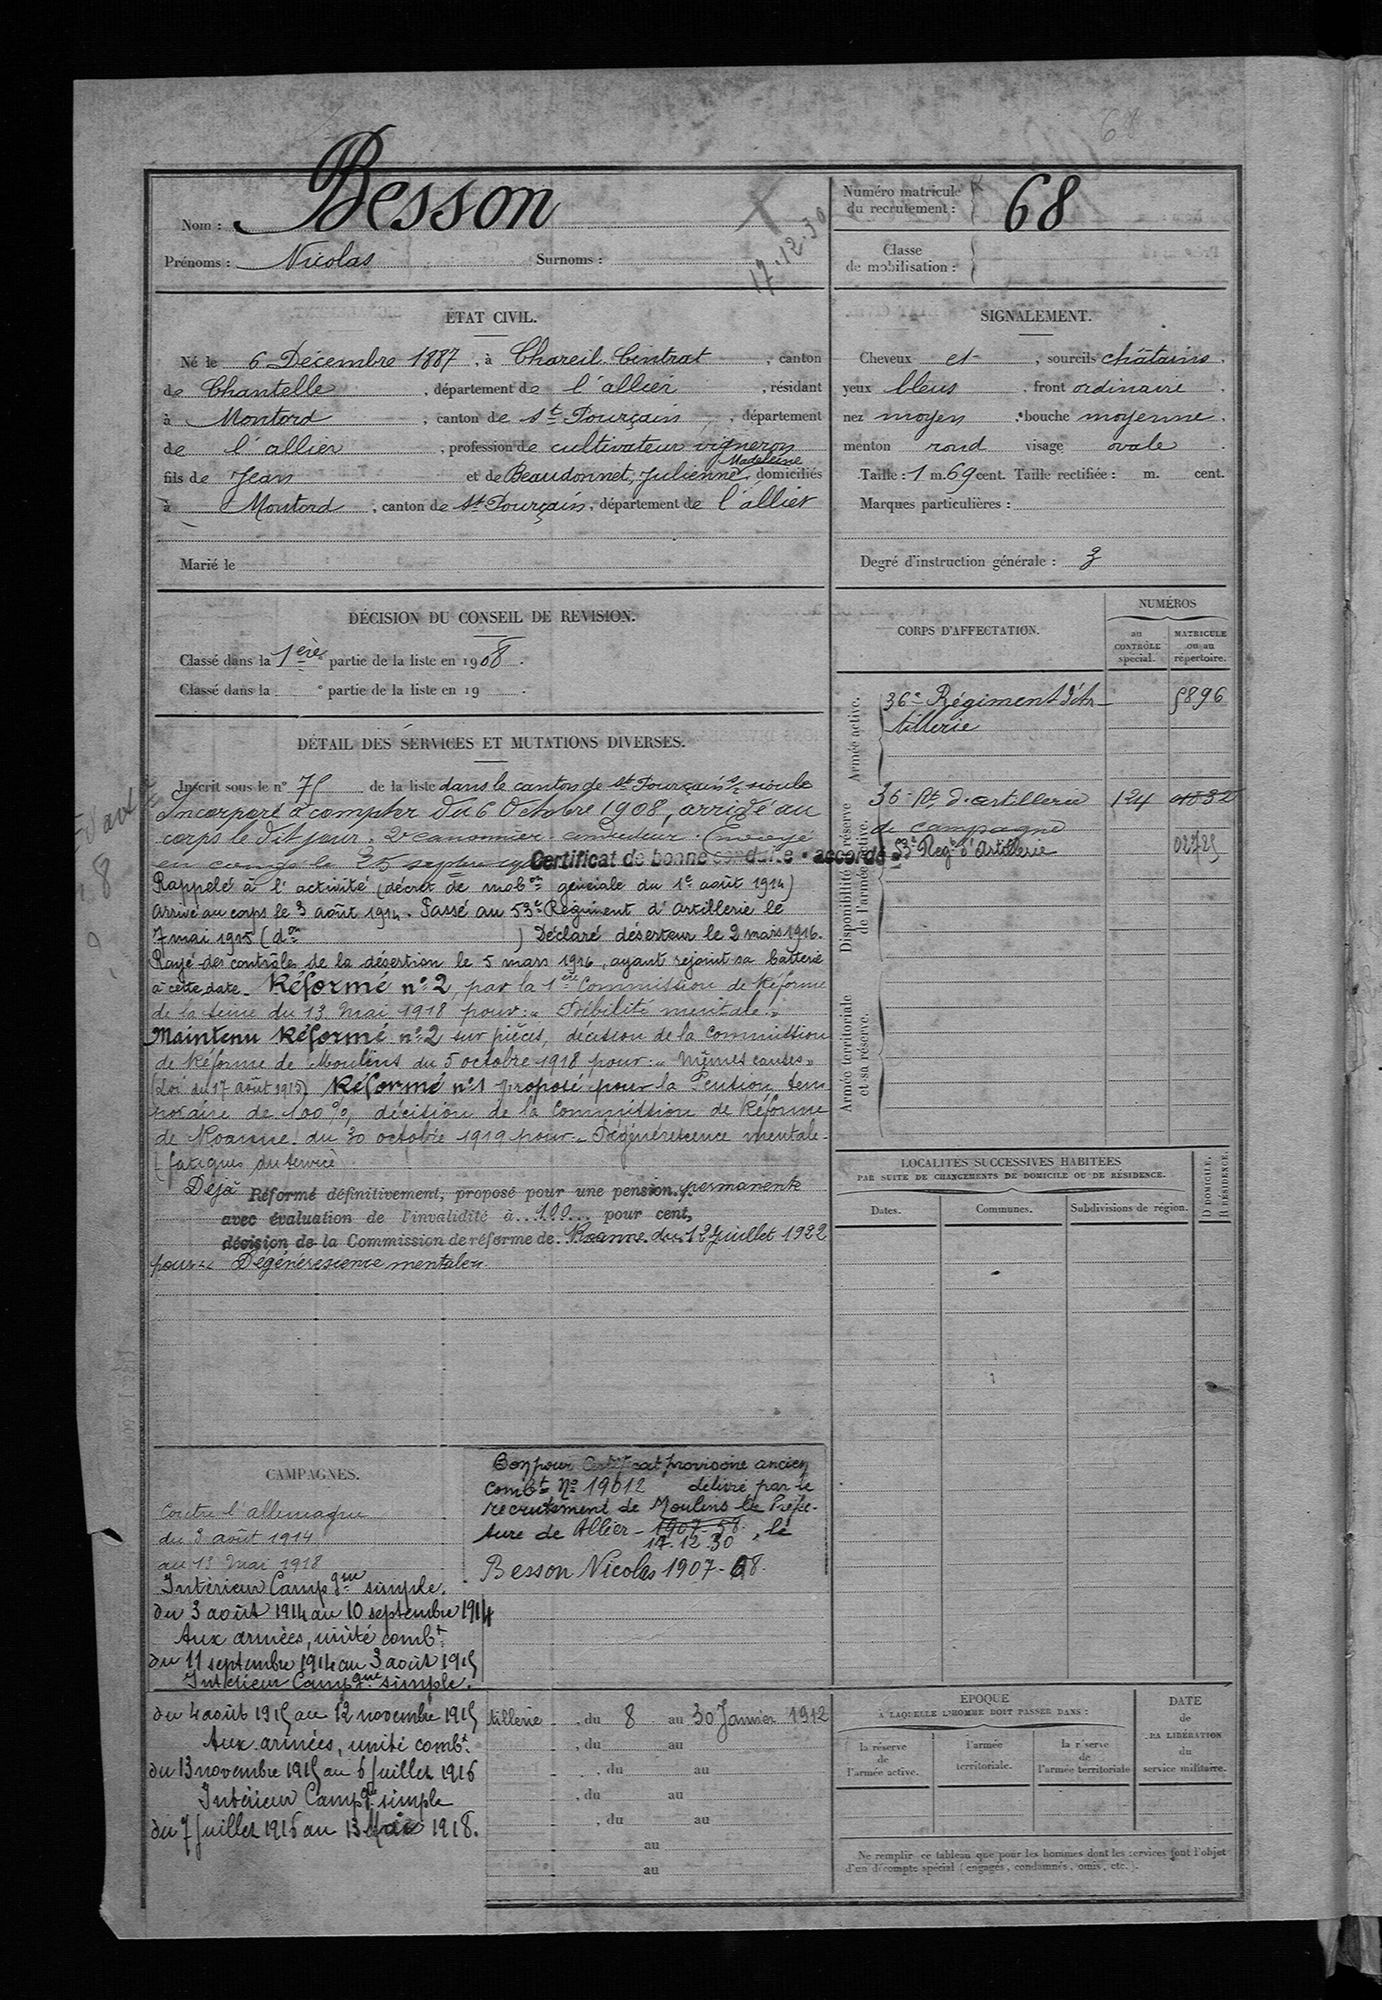 68
Nom : Besson
Prénoms : Nicolas Surnoms :
17.12.30
Numéro matricule du recrutement : 68
Classe de mobilisation :
ÉTAT CIVIL.
Né le 6 Décembre 1887, à Chareil-Cintrat, canton
de Chantelle, département de l'allier, résidant
à Montord, canton de St Pourçain, département
de l'allier, profession de cultivateur vigneron
fils de Jean et de Beaudonnet, Julienne Madeleine domiciliés
à Montord, canton de St Pourçain, département de l'allier
Marié le
SIGNALEMENT.
Cheveux et, sourcils châtains,
yeux bleus, front ordinaire,
nez moyen, bouche moyenne,
menton rond visage ovale.
Taille : 1 m. 69 cent. Taille rectifiée : m. cent.
Marques particulières :
Degré d'instruction générale : 3
DÉCISION DU CONSEIL DE REVISION.
Classé dans la 1ère partie de la liste en 1908.
Classé dans la e partie de la liste en 19 .
DÉTAIL DES SERVICES ET MUTATIONS DIVERSES.
Inscrit sous le n° 75 de la liste dans le canton de St Pourçain s/ sioule
Incorporé à compter du 6 Octobre 1908, arrivé au
corps le dit jour. 2e canonnier conducteur. Envoyé
en congé le 25 septbre
Certificat de bonne conduite "accordé"
Rappelé à l'activité (décret de mobon générale du 1er août 1914)
Arrivé au corps le 3 août 1914. Passé au 53e Régiment d'Artillerie le
7 mai 1915 (don ) Déclaré déserteur le 2 mars 1916.
Rayé des contrôles de la désertion le 5 mars 1916, ayant rejoint sa batterie
à cette date. Réformé n°2, par la 1ère Commission de Réforme
de la Seine du 13 Mai 1918 pour : "Débilité mentale."
Maintenu Réformé n°2 sur pièces, décision de la Commission
de Réforme de Moulins du 5 octobre 1918 pour : "mêmes causes"
(Loi du 17 août 1915) Réformé n°1 proposé pour la Pension tem
poraire de 100%, décision de la Commission de Réforme
de Roanne du 30 octobre 1919 pour "Dégénérescence mentale -
(fatigues du service)
Déjà Réformé définitivement, proposé pour une pension permanente
avec évaluation de l'invalidité à 100 pour cent,
décision de la Commission de réforme de Roanne du 12 Juillet 1922
pour "Dégénérescence mentale"
CORPS D'AFFECTATION.
NUMÉROS
au CONTRÔLE spécial.
MATRICULE ou au répertoire.
Armée active.
36e Régiment d'Ar- 5896
tillerie
Disponibilité et réserve de l'armée active.
36e Rt d'artillerie 124
de campagne
53e Regt d'Artillerie 02725
Armée territoriale et sa réserve.
LOCALITÉS SUCCESSIVES HABITÉES
PAR SUITE DE CHANGEMENTS DE DOMICILE OU DE RÉSIDENCE.
Dates. Communes. Subdivisions de région.
D DOMICILE. R RÉSIDENCE.
CAMPAGNES.
Contre l'allemagne
du 3 août 1914
au 13 mai 1918
Intérieur Campgne simple.
du 3 août 1914 au 10 septembre 1914
Aux armées, unité combt
du 11 septembre 1914 au 3 août 1915
Intérieur Campgne simple.
du 4 août 1915 au 12 novembre 1915
Aux armées, unité combt.
du 13 novembre 1915 au 6 Juillet 1916
Intérieur Campgne simple
du 7 Juillet 1916 au 13 Mai 1918.
Bon pour Certificat provisoire ancien
combt No 19612 délivré par le
recrutement de Moulins Préfec-
ture de Allier - 1907-58, le
17.12.30
Besson Nicolas 1907-68.
tillerie, du 8 au 30 Janvier 1912
, du au
, du au
, du au
, du au
au
au
ÉPOQUE
À LAQUELLE L'HOMME DOIT PASSER DANS :
la réserve de l'armée active.
l'armée territoriale.
la réserve de l'armée territoriale
DATE de LA LIBÉRATION du service militaire.
Ne remplir ce tableau que pour les hommes dont les services font l'objet
d'un décompte spécial (engagés, condamnés, omis, etc.).